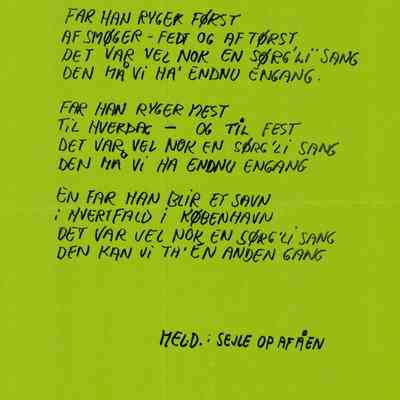 FAR HAN RYGER FØRST
AF SMØGER - FEDT OG AF TØRST
DET VAR VEL NOK EN SØRG'LI' SANG
DEN MÅ VI HA' ENDNU ENGANG.
FAR HAN RYGER MEST
TIL HVERDAG — OG TIL FEST
DET VAR VEL NOK EN SØRG'LI SANG
DEN MÅ VI HA ENDNU ENGANG
EN FAR MAN BLIR ET SAVN
i HVERTFALD i KØBENHAVN
DET VAR VEL NOK EN SØRG'LI SANG
DEN KAN Vi TA' EN ANDEN GANG
MELD.: SEJLE OP AF ÅEN